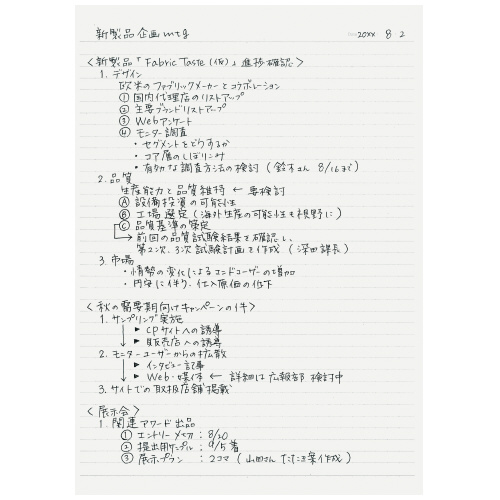 新製品企画mtg 20XX 8 2
〈新製品「Fabric Taste(仮)」進捗確認〉
1. デザイン
欧米のファブリックメーカーとコラボレーション
① 国内代理店のリストアップ
② 主要ブランドリストアップ
③ Webアンケート
④ モニター調査
・セグメントをどうするか
・コア層のしぼりこみ
・有効な調査方法の検討(鈴木さん 8/16まで)
2. 品質
生産能力と品質維持 ← 要検討
Ⓐ 設備投資の可能性
Ⓑ 工場選定(海外生産の可能性も視野に)
Ⓒ 品質基準の策定
→ 前回の品質試験結果を確認し、
第2次、3次試験計画を作成(深田課長)
3. 市場
・情勢の変化によるエンドユーザーの増加
・円安に伴う、仕入原価の低下
〈秋の需要期向けキャンペーンの件〉
1. サンプリング実施
▶ CPサイトへの誘導
▶ 販売店への誘導
2. モニターユーザーからの拡散
▶ インタビュー記事
▶ Web・媒体 ← 詳細は広報部 検討中
3. サイトでの取扱店舗掲載
〈展示会〉
1. 関連アワード出品
① エントリー〆切:8/20
② 提出用サンプル:9/5着
③ 展示プラン:2コマ(山田さん たたき案作成)